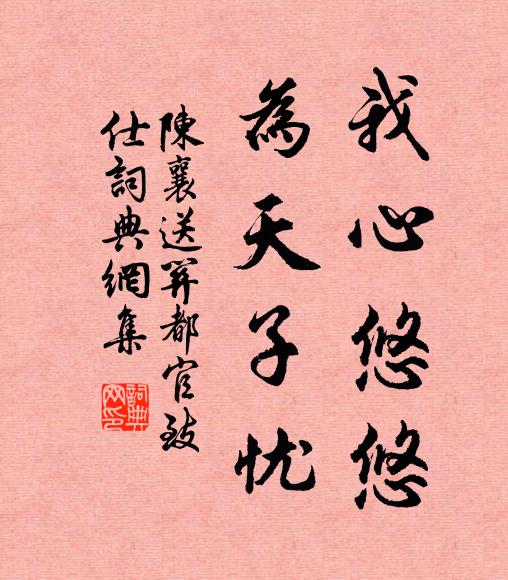 我心悠悠
為天子忧
陳襄送羿都官致
仕詞典網集
詞典
网印